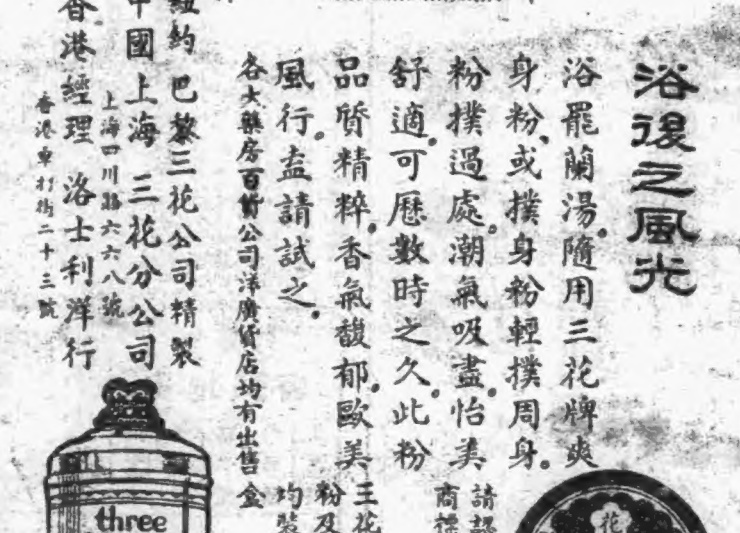 浴後之風光
浴罷蘭湯。隨用三花牌爽
身粉、或撲身粉輕撲周身。
粉撲過處。潮氣吸盡。怡美
舒適。可歷數時之久。此粉
品質精粹。香氣馥郁。歐美
風行。盍請試之。
各大藥房百貨公司洋廣貨店均有出售
紐約 巴黎三花公司精製
中國上海 三花分公司
上海四川路六六八號
香港經理 洛士利洋行
香港車打街二十三號
請認
商標
三花
粉及
均裝
盒
花
three